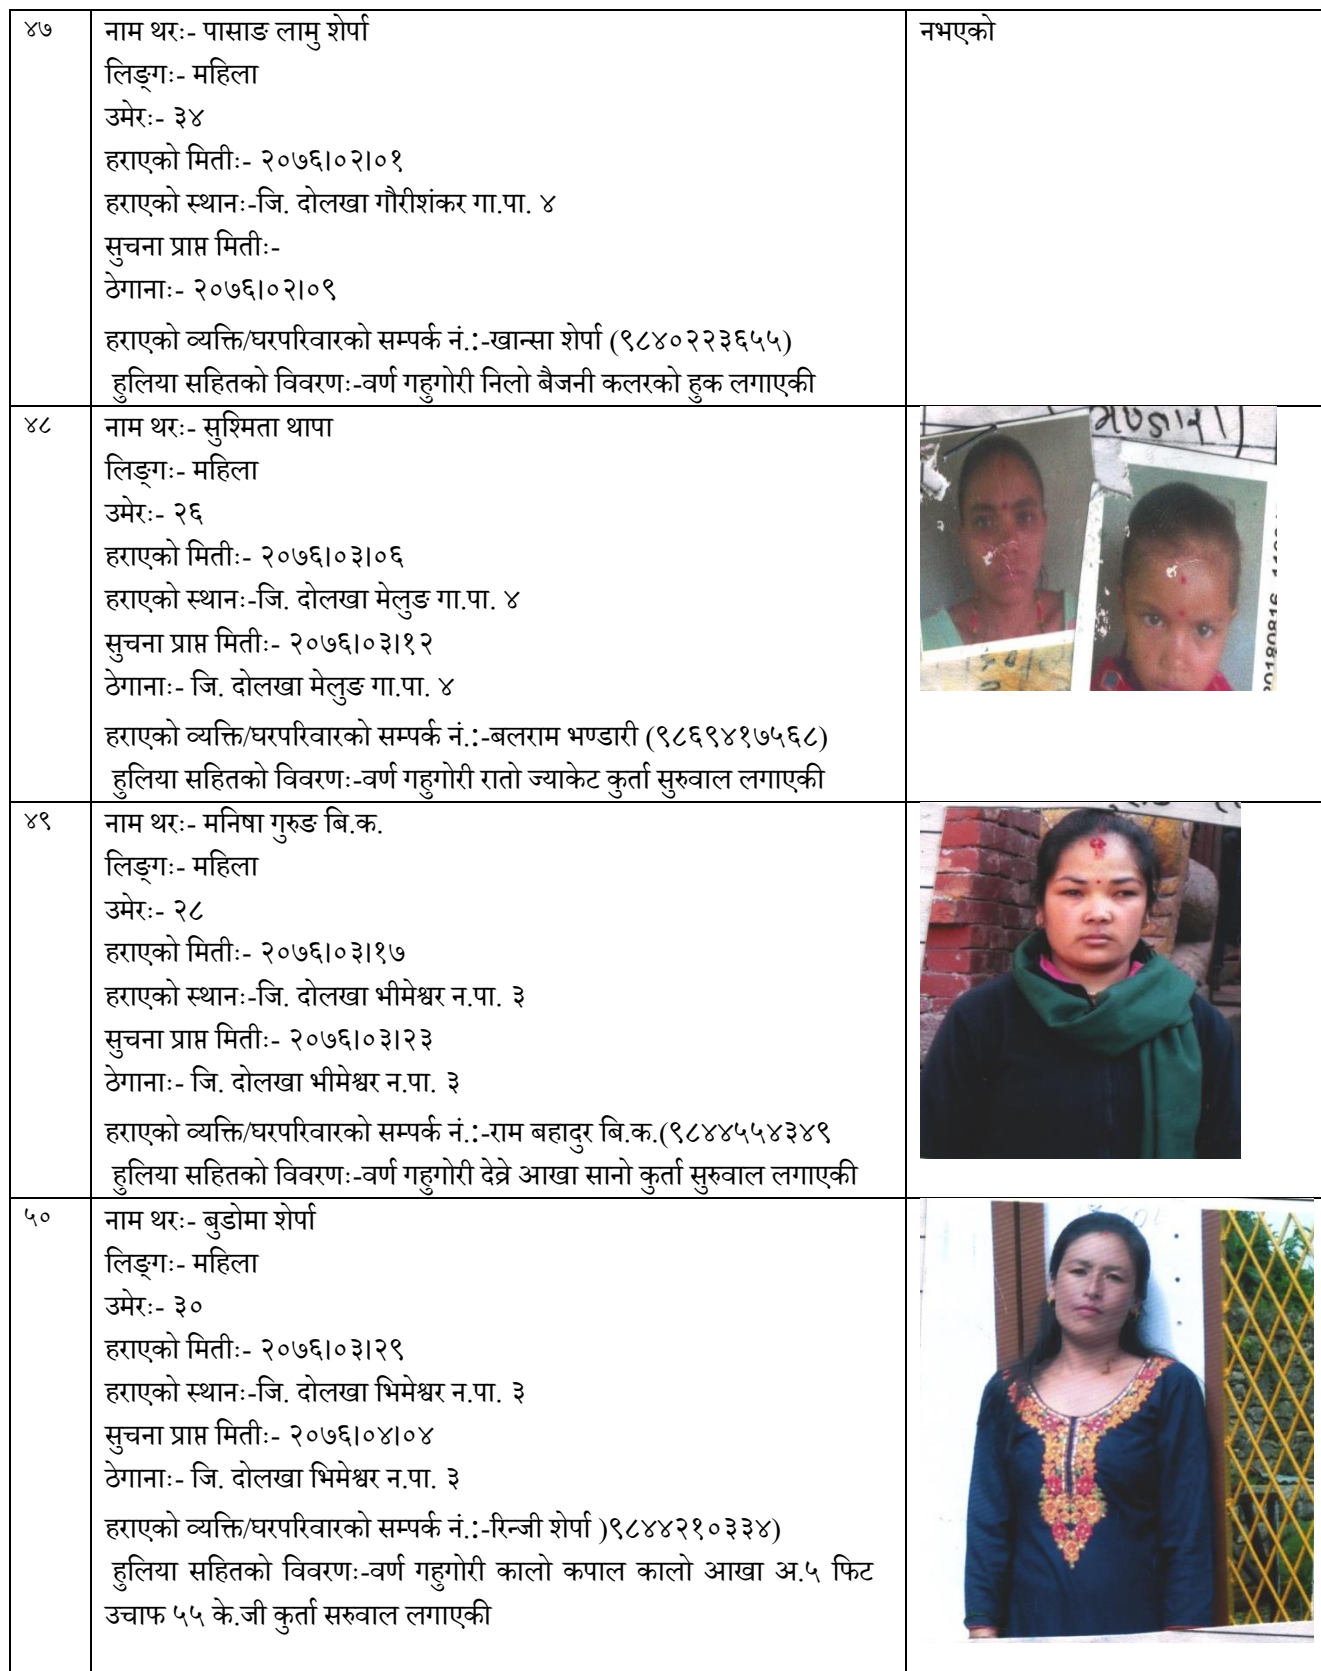 ४७
नाम थरः- पासाङ लामु शेर्पा
लिङ्गः- महिला
उमेरः- ३४
हराएको मितीः- २०७६।०२।०१
हराएको स्थानः-जि. दोलखा गौरीशंकर गा.पा. ४
सुचना प्राप्त मितीः-
ठेगानाः- २०७६।०२।०९
हराएको व्यक्ति/घरपरिवारको सम्पर्क नं.:-खान्सा शेर्पा (९८४०२२३६५५)
हुलिया सहितको विवरणः-वर्ण गहुगोरी निलो बैजनी कलरको हुक लगाएकी
नभएको
४८
नाम थरः- सुश्मिता थापा
लिङ्गः- महिला
उमेरः- २६
हराएको मितीः- २०७६।०३।०६
हराएको स्थानः-जि. दोलखा मेलुङ गा.पा. ४
सुचना प्राप्त मितीः- २०७६।०३।१२
ठेगानाः- जि. दोलखा मेलुङ गा.पा. ४
हराएको व्यक्ति/घरपरिवारको सम्पर्क नं.:-बलराम भण्डारी (९८६९४१७५६८)
हुलिया सहितको विवरणः-वर्ण गहुगोरी रातो ज्याकेट कुर्ता सुरुवाल लगाएकी
20180816
४९
नाम थरः- मनिषा गुरुङ बि.क.
लिङ्गः- महिला
उमेरः- २८
हराएको मितीः- २०७६।०३।१७
हराएको स्थानः-जि. दोलखा भीमेश्वर न.पा. ३
सुचना प्राप्त मितीः- २०७६।०३।२३
ठेगानाः- जि. दोलखा भीमेश्वर न.पा. ३
हराएको व्यक्ति/घरपरिवारको सम्पर्क नं.:-राम बहादुर बि.क.(९८४४५५४३४९
हुलिया सहितको विवरणः-वर्ण गहुगोरी देव्रे आखा सानो कुर्ता सुरुवाल लगाएकी
५०
नाम थरः- बुडोमा शेर्पा
लिङ्गः- महिला
उमेरः- ३०
हराएको मितीः- २०७६।०३।२९
हराएको स्थानः-जि. दोलखा भिमेश्वर न.पा. ३
सुचना प्राप्त मितीः- २०७६।०४।०४
ठेगानाः- जि. दोलखा भिमेश्वर न.पा. ३
हराएको व्यक्ति/घरपरिवारको सम्पर्क नं.:-रिन्जी शेर्पा )९८४४२१०३३४)
हुलिया सहितको विवरणः-वर्ण गहुगोरी कालो कपाल कालो आखा अ.५ फिट
उचाफ ५५ के.जी कुर्ता सरुवाल लगाएकी